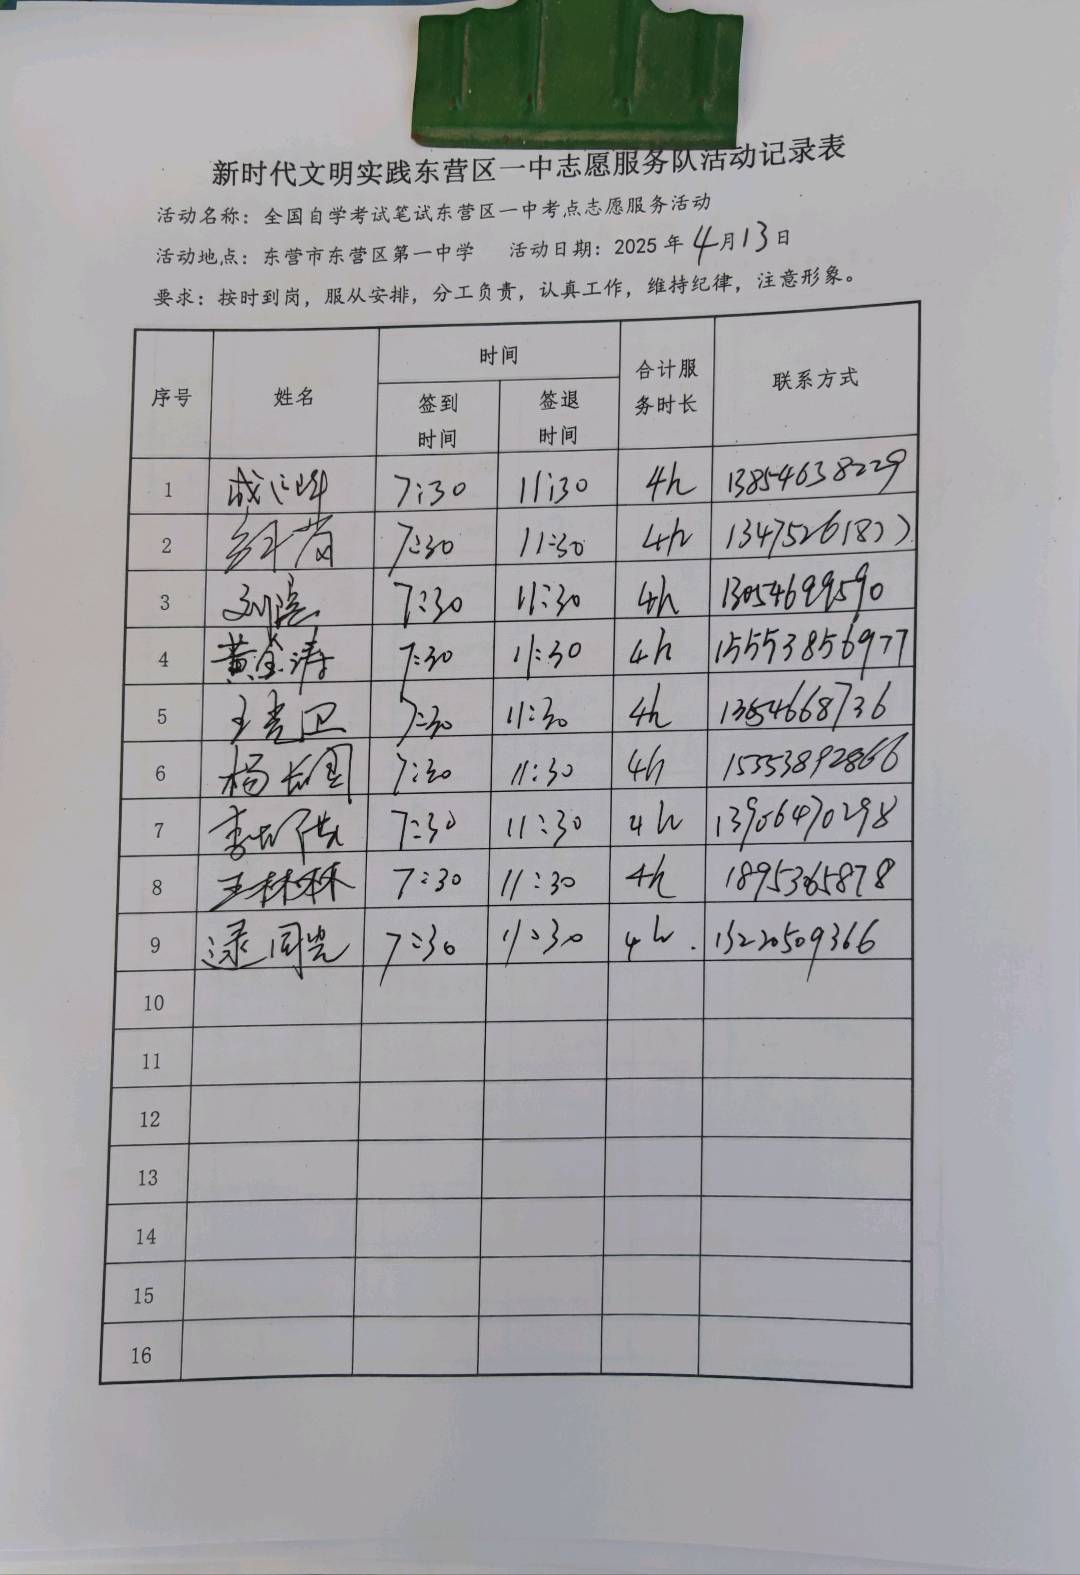 新时代文明实践东营区一中志愿服务队活动记录表
活动名称：全国自学考试笔试东营区一中考点志愿服务活动
活动地点：东营市东营区第一中学 活动日期：2025 年 4 月 13 日
要求：按时到岗，服从安排，分工负责，认真工作，维持纪律，注意形象。
序号 姓名 时间 合计服务时长 联系方式
签到时间 签退时间
1 7:30 11:30 4h 13854638229
2 7:30 11:30 4h
3 7:30 11:30 4h
4 黄金涛 7:30 11:30 4h 15553856977
5 7:30 11:30 4h 13854668736
6 7:30 11:30 4h 15353892866
7 7:30 11:30 4h 13906470298
8 王林林 7:30 11:30 4h
9 逯同光 7:30 11:30 4h. 13220509366
10
11
12
13
14
15
16